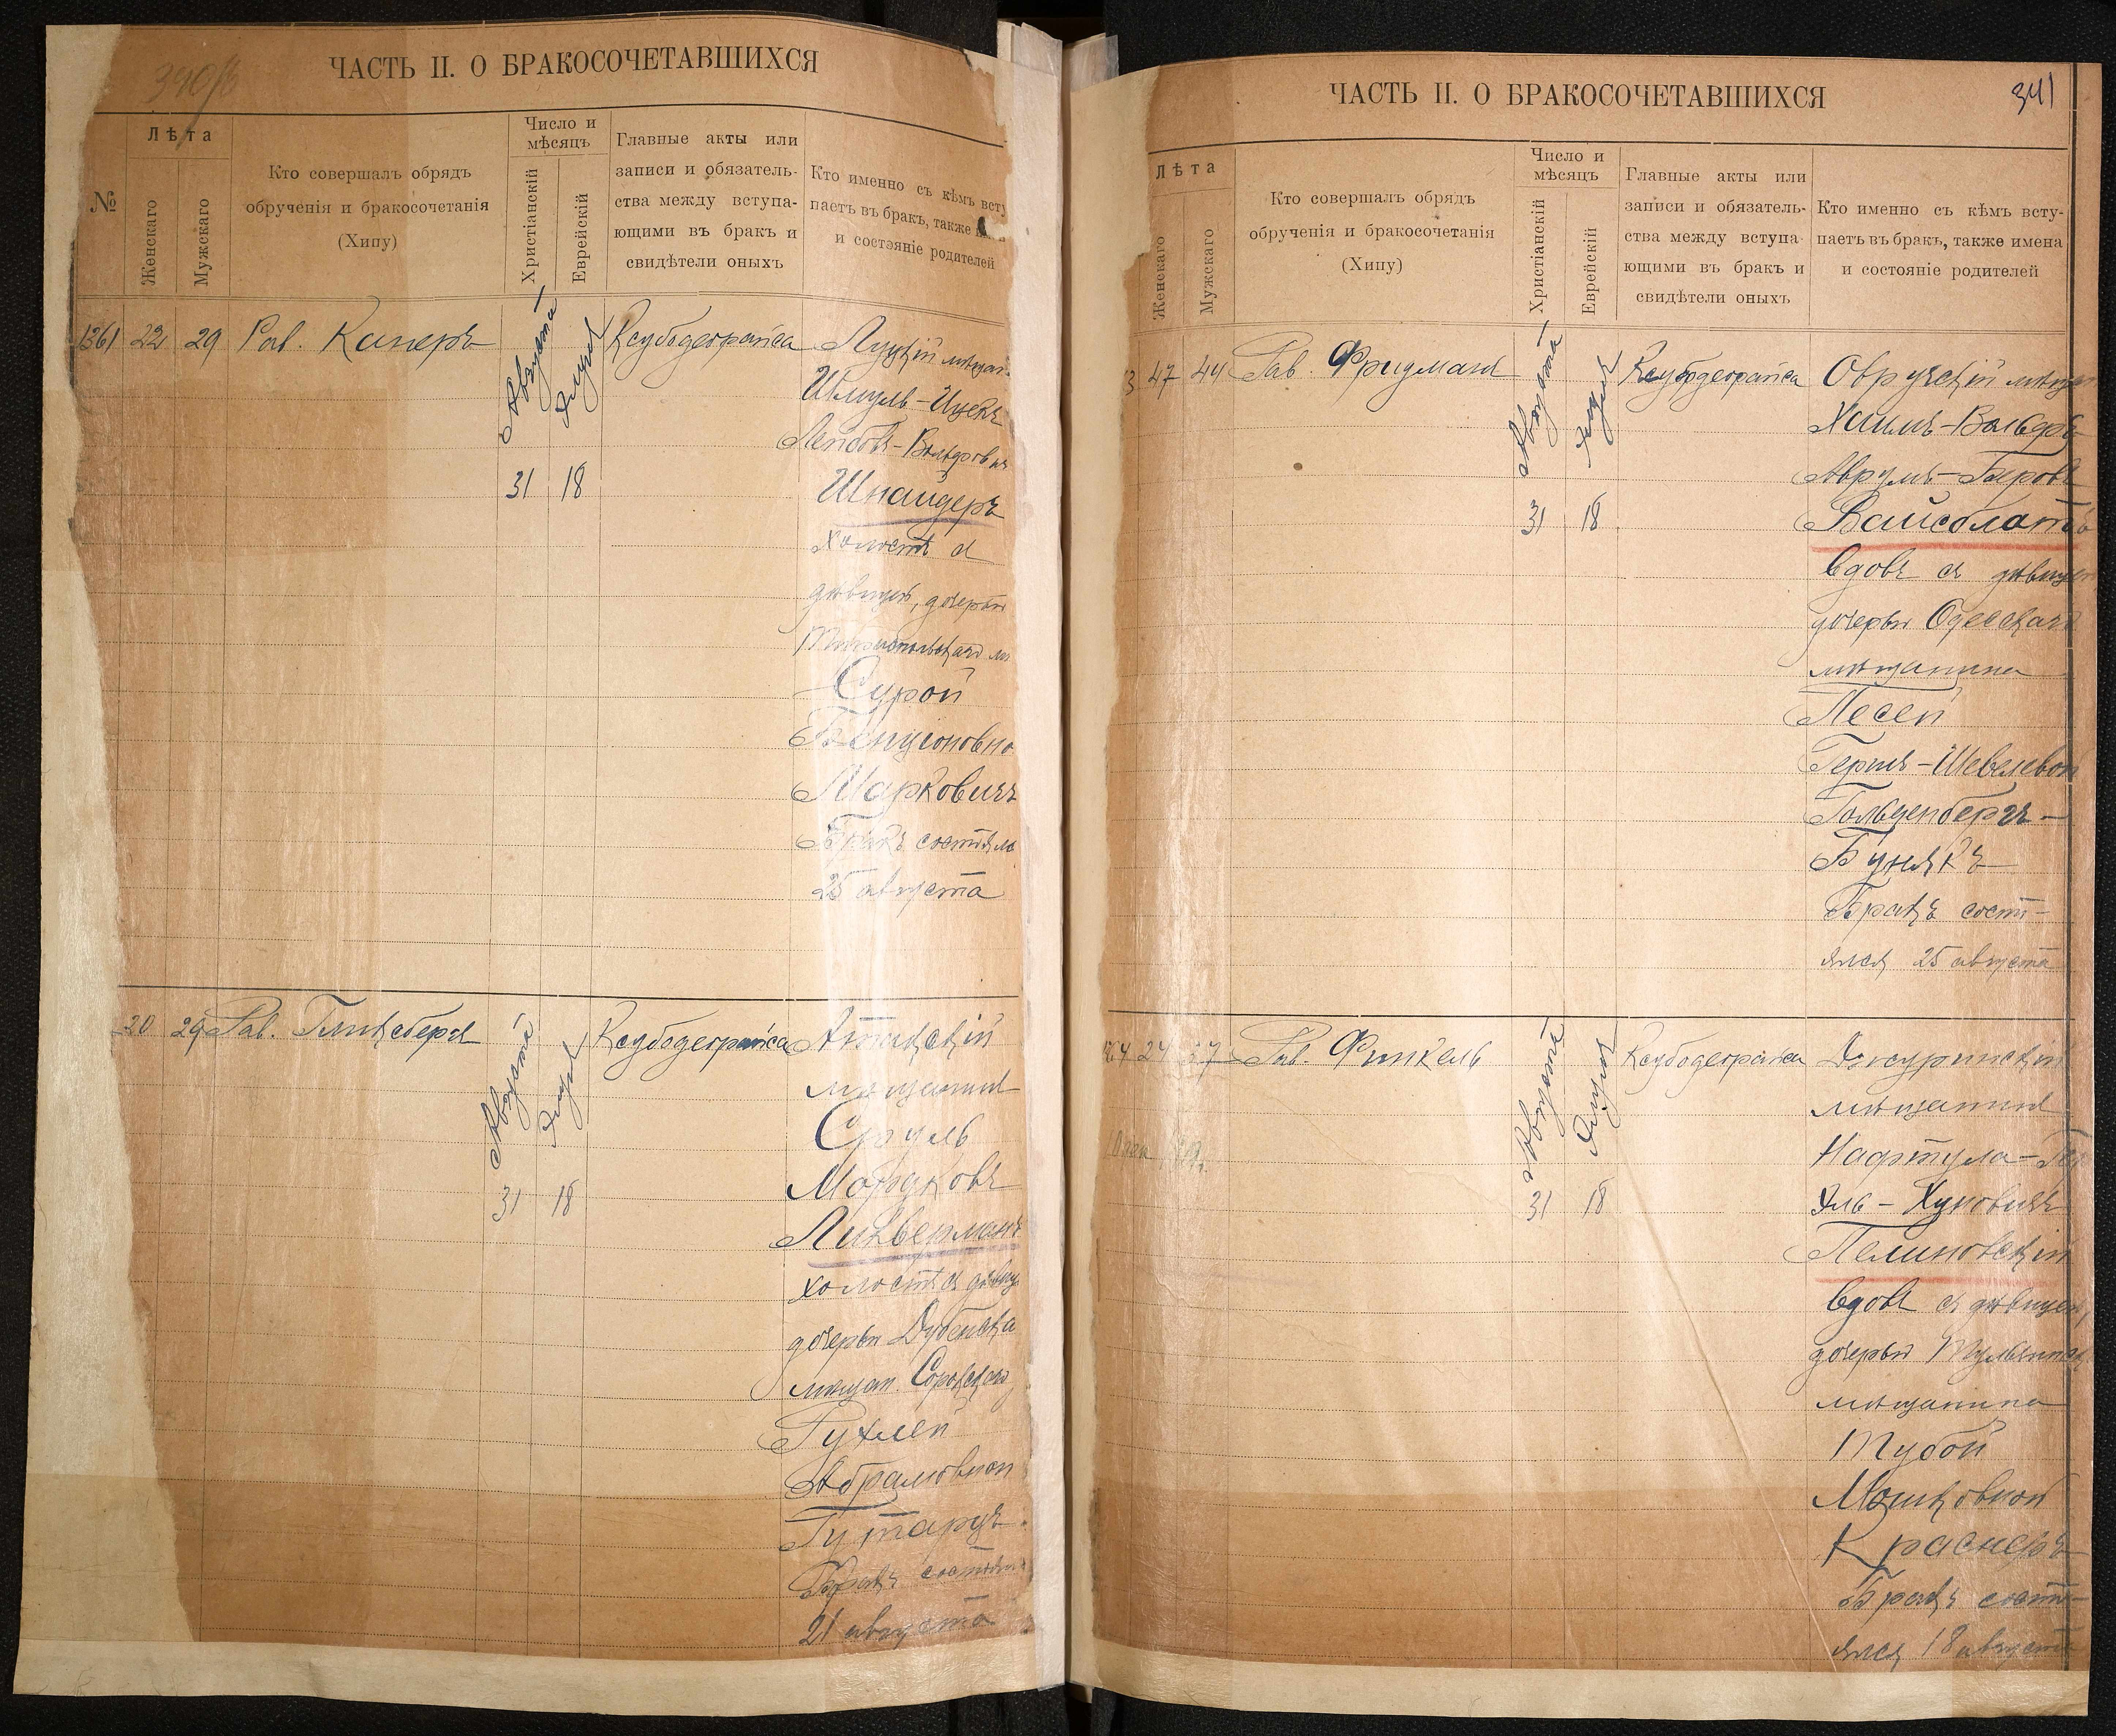 340/б
ЧАСТЬ II. О БРАКОСОЧЕТАВШИХСЯ
№
Лѣта
Женскаго
Мужскаго
Кто совершалъ обрядъ
обрученія и бракосочетанія
(Хипу)
Число и
мѣсяцъ
Христіанскій
Еврейскій
Главные акты или
записи и обязатель-
ства между вступа-
ющими въ бракъ и
свидѣтели оныхъ
Кто именно съ кѣмъ всту
паетъ въ бракъ, также
и состояніе родителей
1361 22 29 Рав. Киперъ
Августа
Элуля
31 18
Ксубодеорайса
Луцкій мѣщан
Шмуль-Ицекъ
Лейбовъ-Вольфовичъ
Шнайдеръ
холостъ съ
дѣвицей, дочерью
Сурой
Бенционовно
Марковичъ
Бракъ состоялс
25 августа
20 29 Рав. Гликсбергъ
Августа
Элуля
31 18
Ксубодеорайса
мѣщанинъ
Сруль
Мордковъ
Ликверманъ
холостъ съ дѣвиц
дочерью Дубенска
мѣщан.
Рухлей
Абрамовной
Гутарцъ
Бракъ состоял
21 августа
ЧАСТЬ II. О БРАКОСОЧЕТАВШИХСЯ
341
Лѣта
Женскаго
Мужскаго
Кто совершалъ обрядъ
обрученія и бракосочетанія
(Хипу)
Число и
мѣсяцъ
Христіанскій
Еврейскій
Главные акты или
записи и обязатель-
ства между вступа-
ющими въ бракъ и
свидѣтели оныхъ
Кто именно съ кѣмъ всту-
паетъ въ бракъ, также имена
и состояніе родителей
3 47 44 Рав. Фридманъ
Августа
Элуля
31 18
Ксубодеорайса
Овручскій мѣщан
Хаимъ-Вольфъ
Аврумъ-Беровъ
Вайсблатъ
вдовъ съ дѣвицей
дочерью Одесскаго
мѣщанина
Песей
Гершъ-Шевелевой
Гольденбергъ-
Бунякъ
Бракъ состо-
ялся 25 августа
1364 24 37 Рав. Финкель
Августа
Элуля
31 18
Ксубодеорайса
Джуринскій
мѣщанинъ
Нафтула-Гер
Эль-Хуновичъ
Пелиновскій
вдовъ съ дѣвицей,
дочерью Тульчинск
мѣщанина
Тубой
Мошковной
Краснеръ
Бракъ состо-
ялся 18 августа